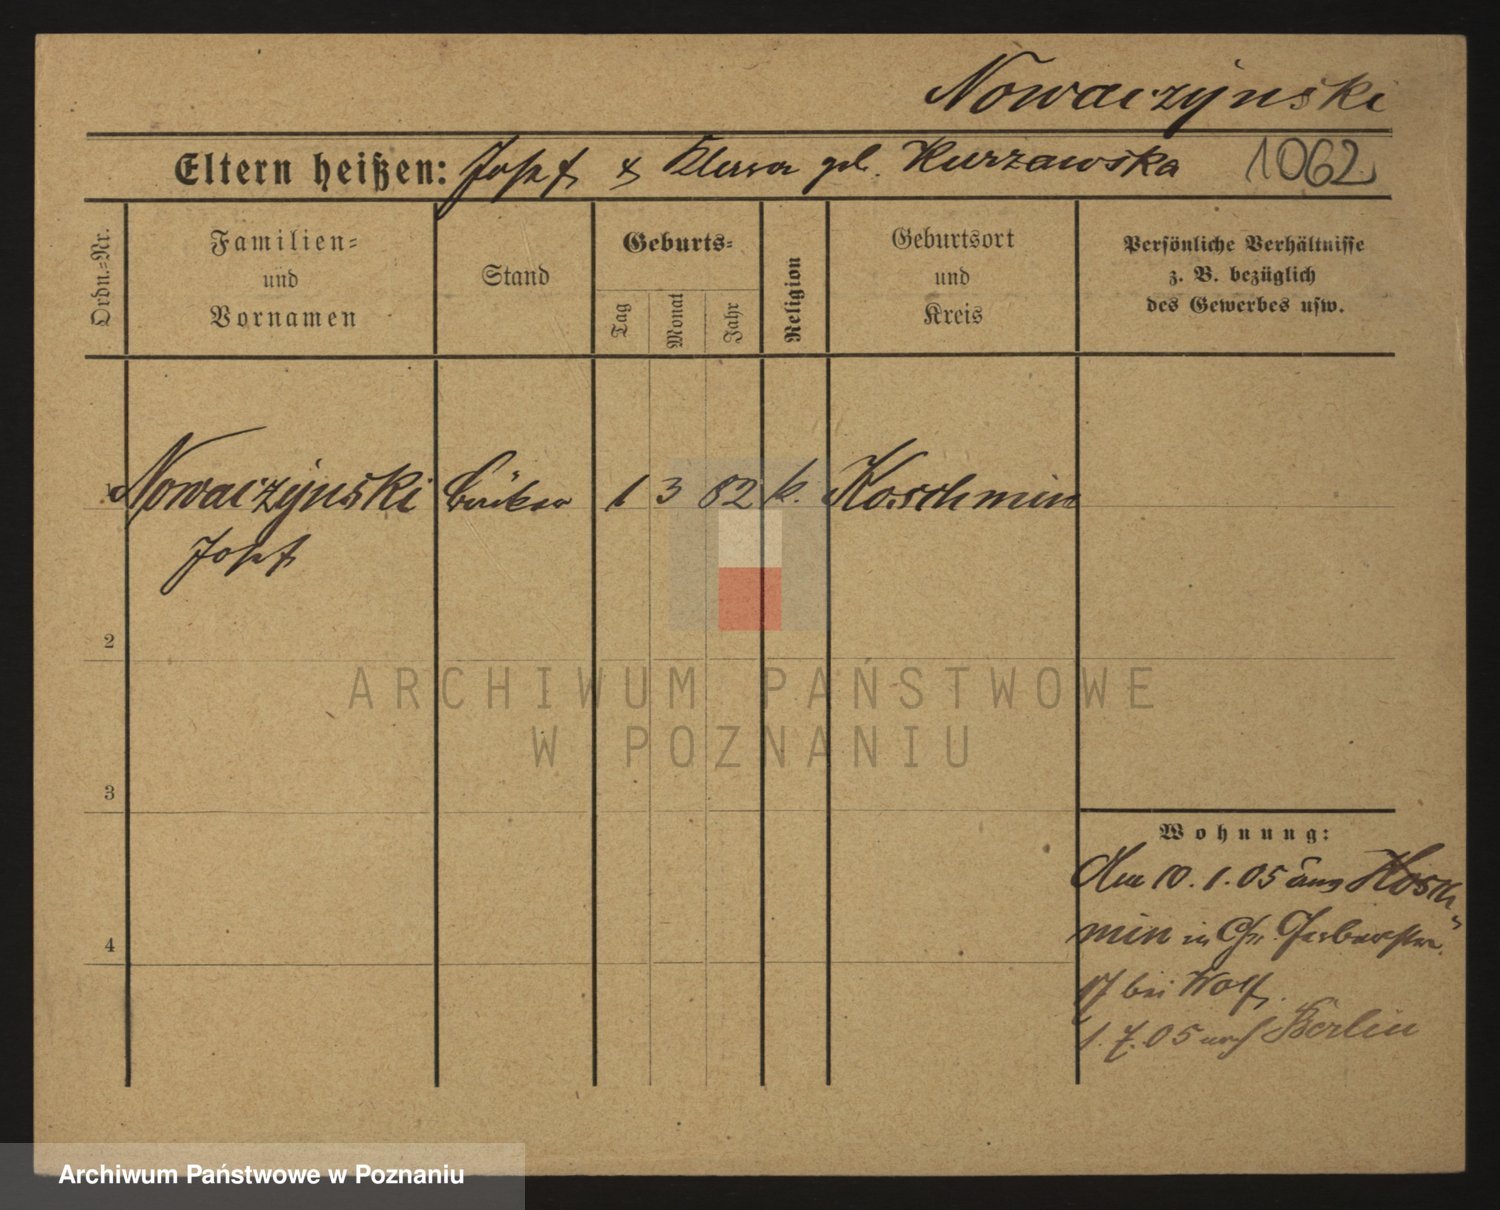 Nowaczynski
Eltern heißen: Josef & Klara geb. Kurzawska 1062
Ordn.-Nr.
Familien-
und
Vornamen
Stand
Geburts-
Tag
Monat
Jahr
Religion
Geburtsort
und
Kreis
Persönliche Verhältnisse
z. B. bezüglich
des Gewerbes usw.
1 Nowaczynski Bäcker 1 3 82 k. Koschmin
Josef
2
3
4
Wohnung:
Am 10.1.05 aus Kosch-
min in Gr. Gerberstr.
17 bei Wolf.
1.7.05 nach Berlin
ARCHIWUM PAŃSTWOWE
W POZNANIU
Archiwum Państwowe w Poznaniu